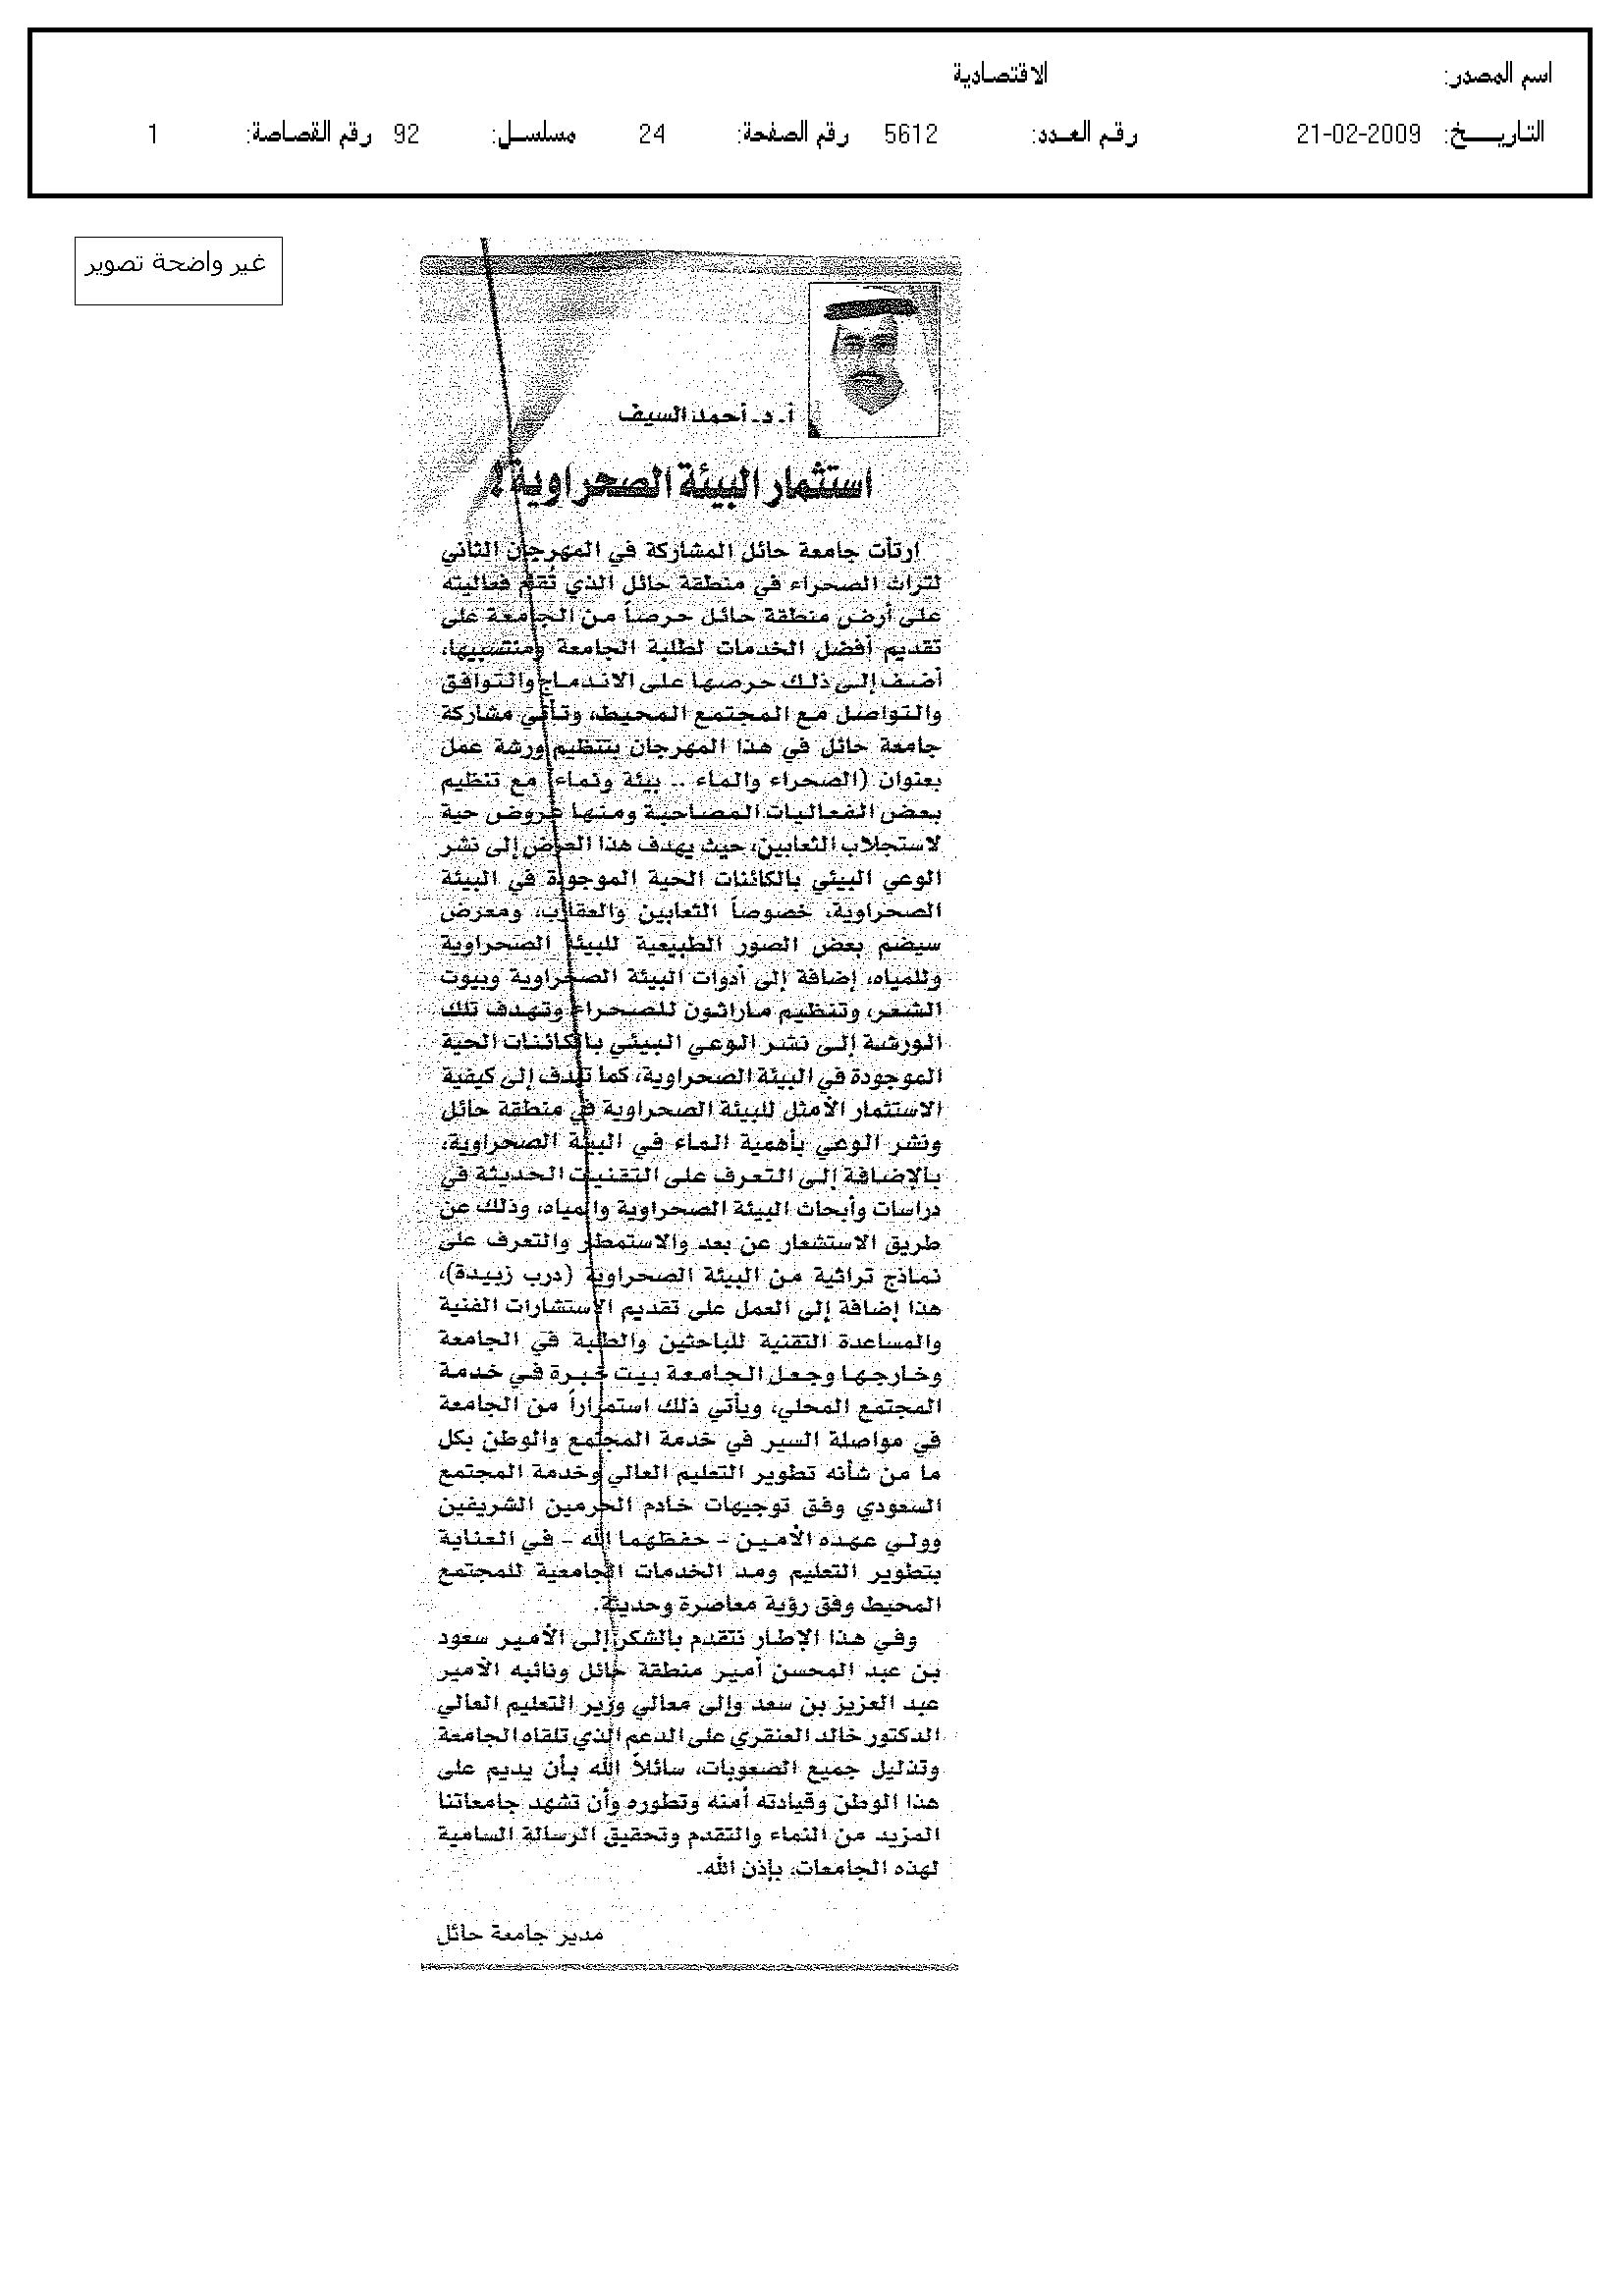 اسم المصدر: الاقتصادية
التاريـــخ: 21-02-2009 رقم العـدد: 5612 رقم الصفحة: 24 مسلسـل: 92 رقم القصاصة: 1
غير واضحة تصوير
أ. د. أحمد السيف
استثمار البيئة الصحراوية!
ارتأت جامعة حائل المشاركة في المهرجان الثاني
لتراث الصحراء في منطقة حائل الذي تُقام فعاليته
على أرض منطقة حائل حرصاً من الجامعة على
تقديم أفضل الخدمات لطلبة الجامعة ومنتسبيها،
أضف إلى ذلك حرصها على الاندماج والتوافق
والتواصل مع المجتمع المحيط، وتأتي مشاركة
جامعة حائل في هذا المهرجان بتنظيم ورشة عمل
بعنوان (الصحراء والماء .. بيئة ونماء) مع تنظيم
بعض الفعاليات المصاحبة ومنها عروض حية
لاستجلاب الثعابين، حيث يهدف هذا العرض إلى نشر
الوعي البيئي بالكائنات الحية الموجودة في البيئة
الصحراوية، خصوصاً الثعابين والعقارب، ومعرض
سيضم بعض الصور الطبيعية للبيئة الصحراوية
وللمياه، إضافة إلى أدوات البيئة الصحراوية وبيوت
الشعر، وتنظيم ماراثون للصحراء وتهدف تلك
الورشة إلى نشر الوعي البيئي بالكائنات الحية
الموجودة في البيئة الصحراوية، كما تهدف إلى كيفية
الاستثمار الأمثل للبيئة الصحراوية في منطقة حائل
ونشر الوعي بأهمية الماء في البيئة الصحراوية،
بالإضافة إلى التعرف على التقنيات الحديثة في
دراسات وأبحاث البيئة الصحراوية والمياه، وذلك عن
طريق الاستشعار عن بعد والاستمطار والتعرف على
نماذج تراثية من البيئة الصحراوية (درب زبيدة)،
هذا إضافة إلى العمل على تقديم الاستشارات الفنية
والمساعدة التقنية للباحثين والطلبة في الجامعة
وخارجها وجعل الجامعة بيت خبرة في خدمة
المجتمع المحلي، ويأتي ذلك استمراراً من الجامعة
في مواصلة السير في خدمة المجتمع والوطن بكل
ما من شأنه تطوير التعليم العالي وخدمة المجتمع
السعودي وفق توجيهات خادم الحرمين الشريفين
وولي عهده الأمين - حفظهما الله - في العناية
بتطوير التعليم ومد الخدمات الجامعية للمجتمع
المحيط وفق رؤية معاصرة وحديثة.
وفي هذا الإطار نتقدم بالشكر إلى الأمير سعود
بن عبد المحسن أمير منطقة حائل ونائبه الأمير
عبد العزيز بن سعد وإلى معالي وزير التعليم العالي
الدكتور خالد العنقري على الدعم الذي تلقاه الجامعة
وتذليل جميع الصعوبات، سائلاً الله بأن يديم على
هذا الوطن وقيادته أمنه وتطوره وأن تشهد جامعاتنا
المزيد من النماء والتقدم وتحقيق الرسالة السامية
لهذه الجامعات، بإذن الله.
مدير جامعة حائل